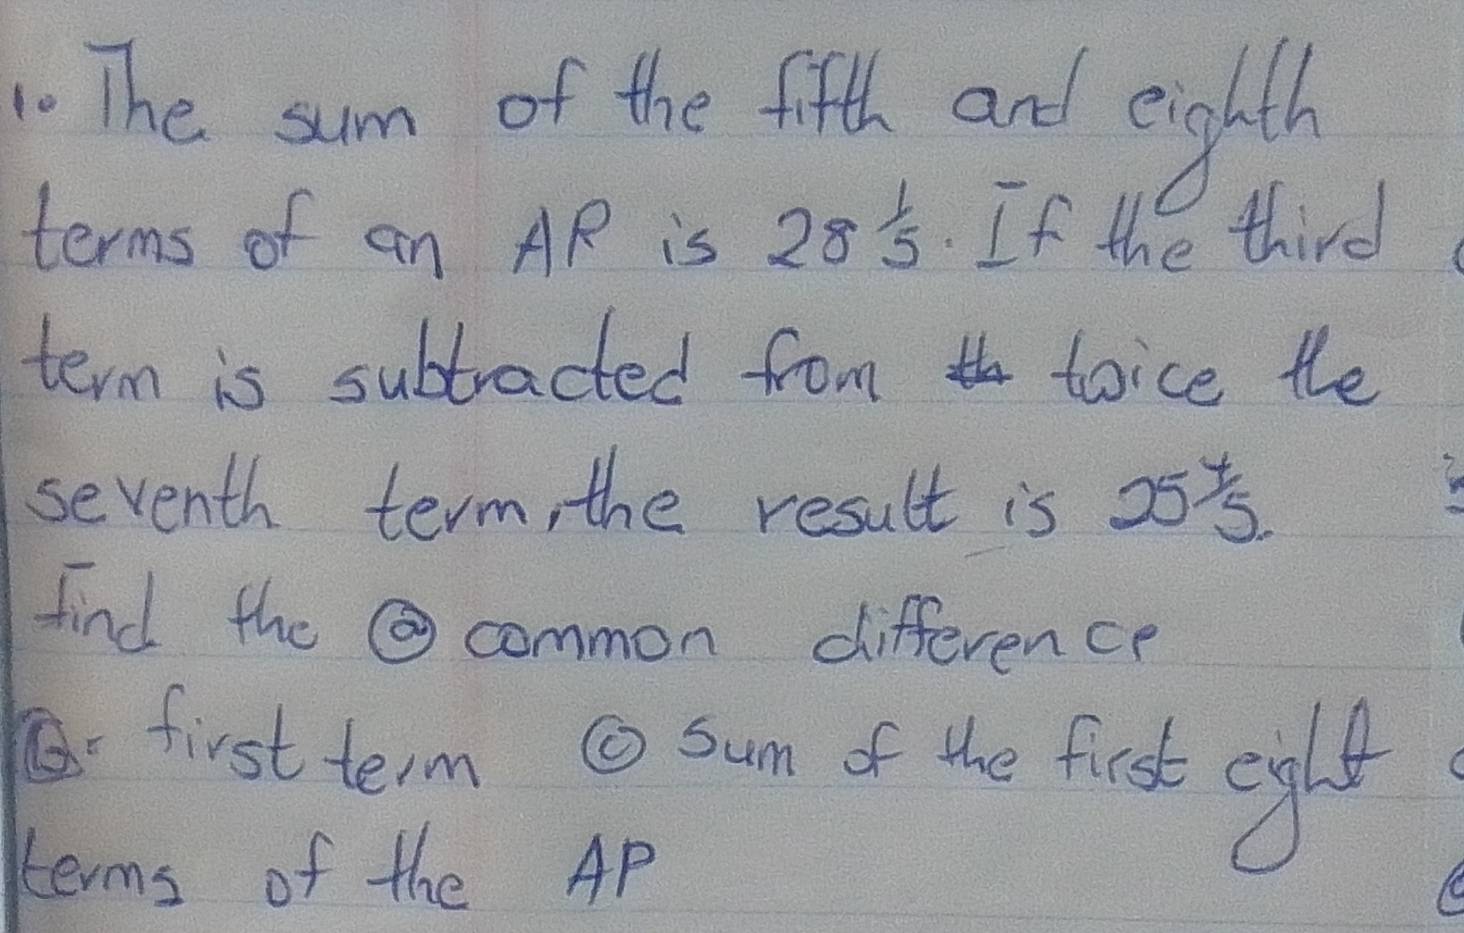 1. The sum of the fifth and eighth
terms of an AP is 28 1/5. If the third
term is subtracted from twice the
seventh term, the result is 25 4/5.
Find the (a) common difference
(b). first term (c) Sum of the first eight
terms of the AP